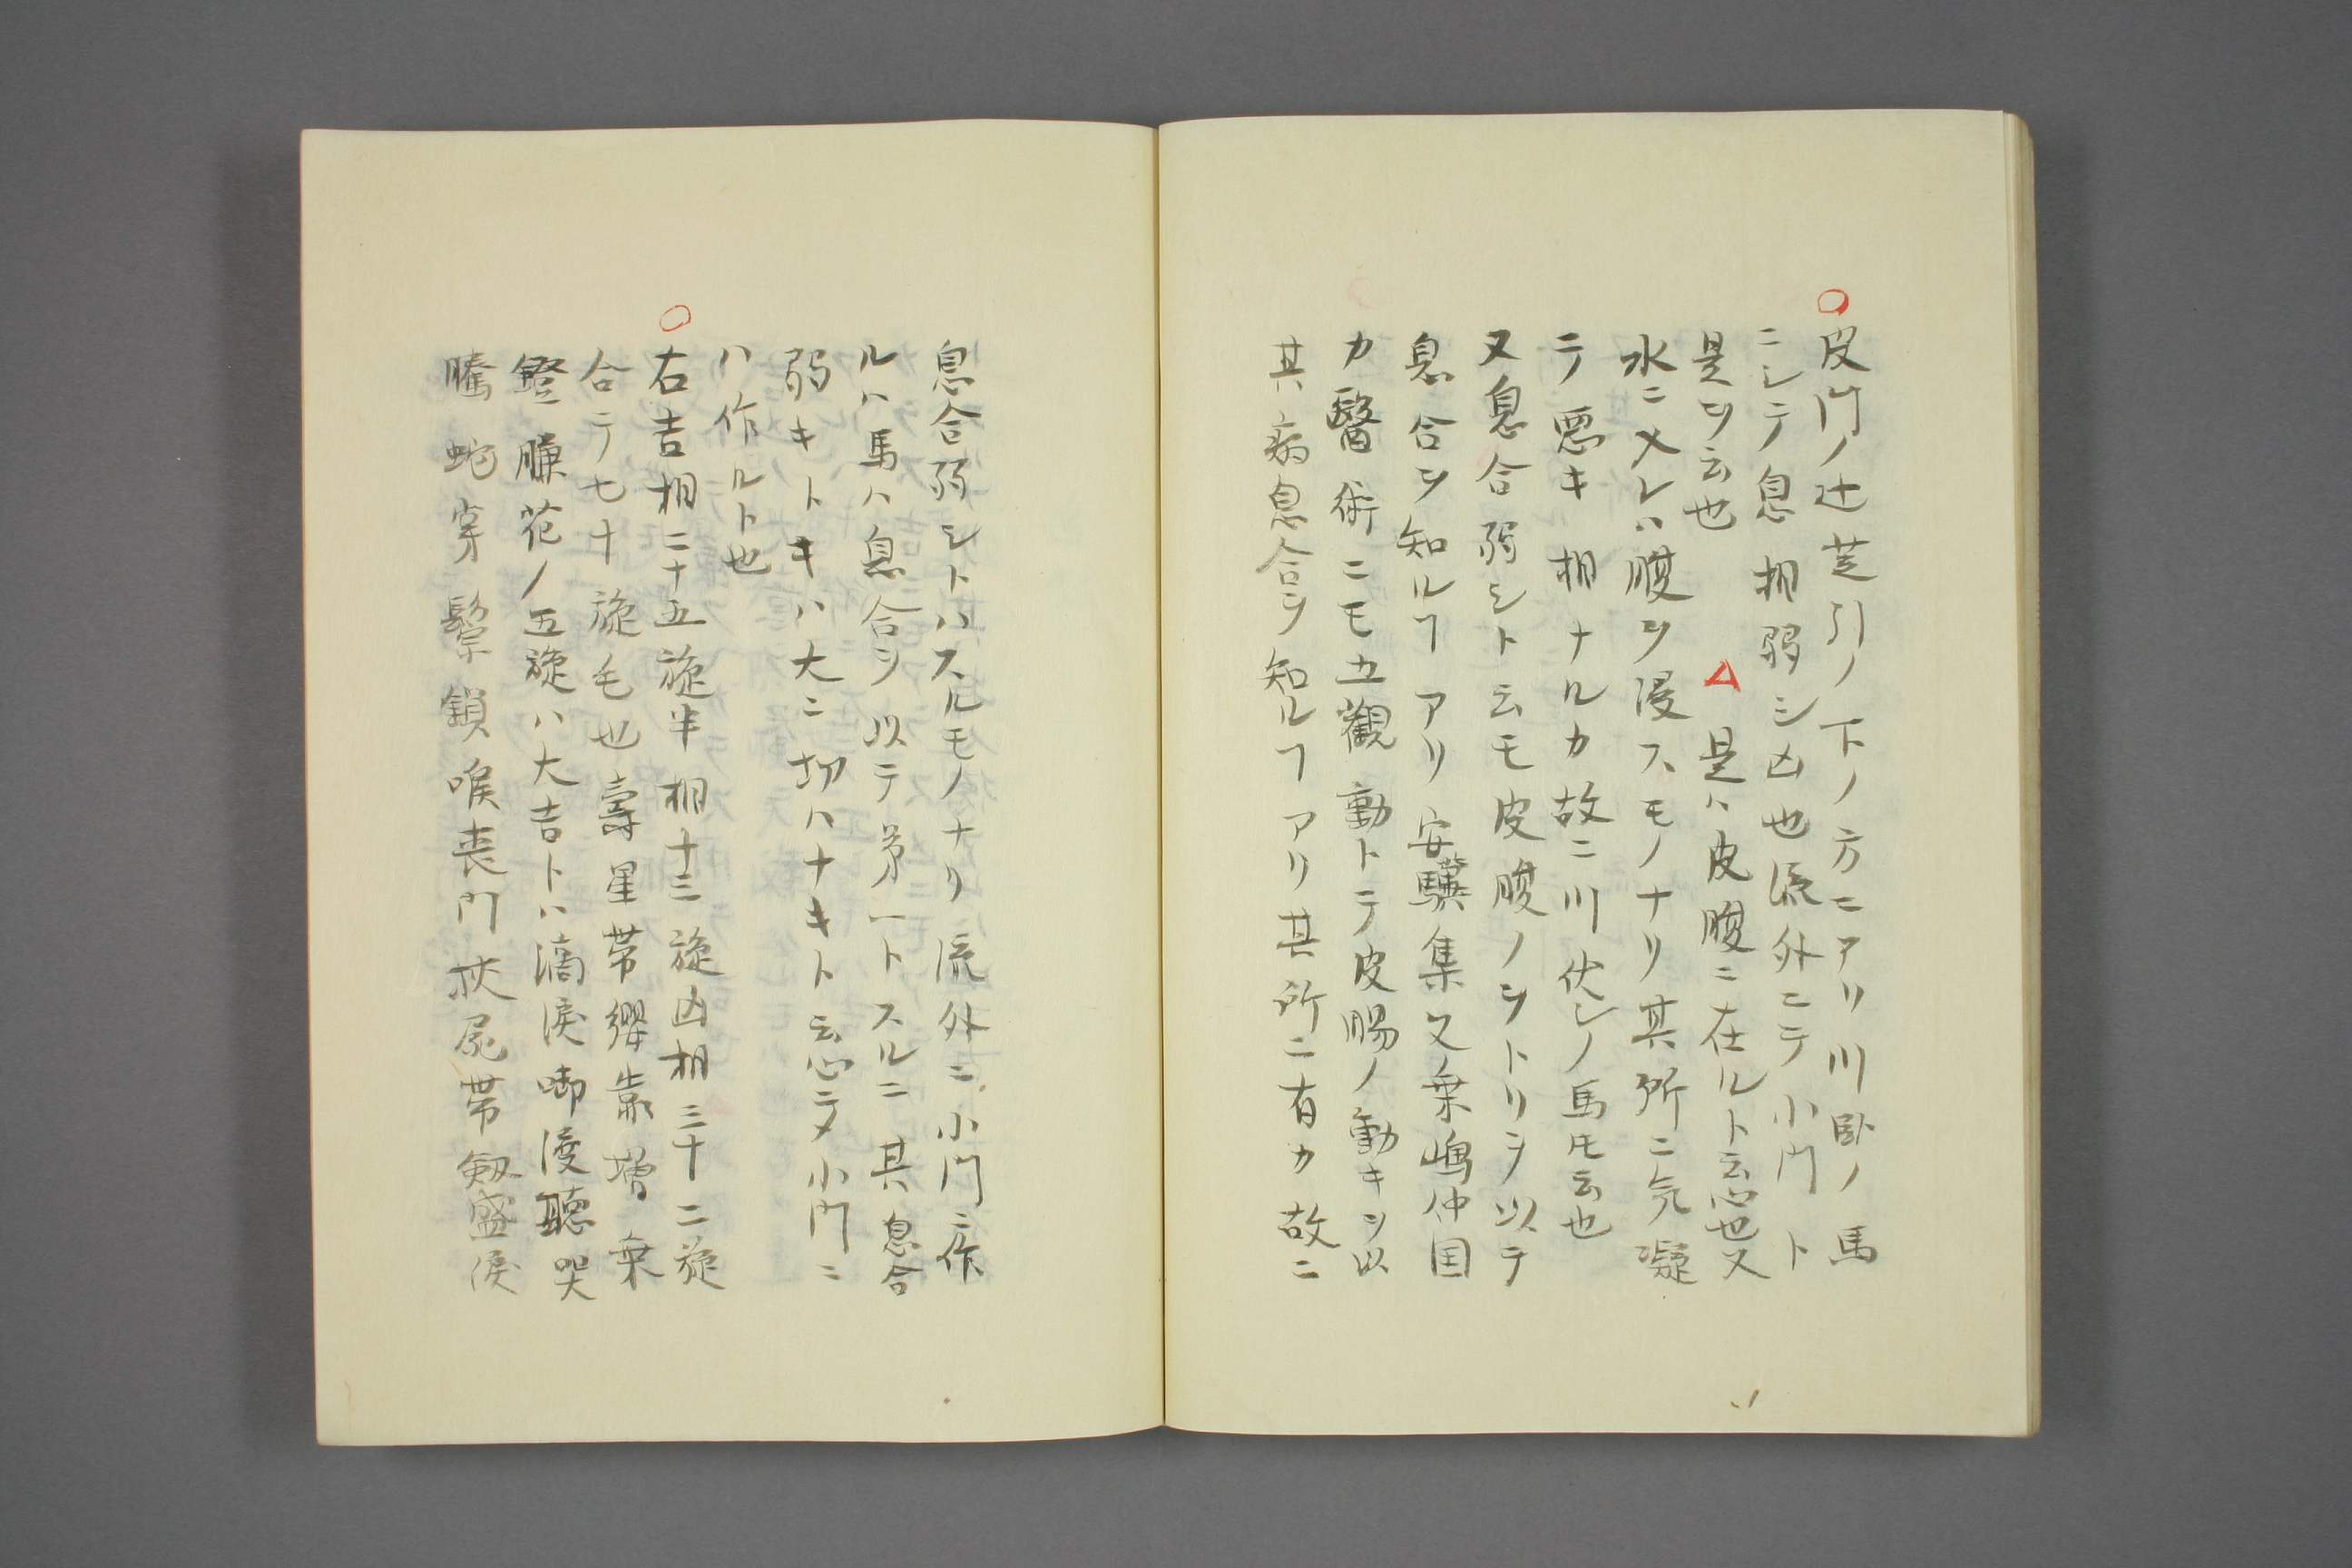 ○皮門ノ辻芝引ノ下ノ方ニアリ川臥ノ馬
ニシテ息相弱シ凶也流外ニテ小門ト
是ヲ云也 △是ハ皮腹ニ在ルト云心也又
水ニ入レハ腹ヲ浸スモノナリ其所ニ気凝
テ悪キ相ナルカ故ニ川伏シノ馬ㇳモ云也
又息合弱シト云モ皮腹ノヲトリヲ以テ
息合ヲ知ルヿアリ安驥集又乗嶋仲国
カ醫術ニモ五觀動トテ皮腸ノ動キヲ以
其病息合ヲ知ルヿアリ其所ニ有カ故ニ
息合弱シトハスルモノナリ流外ニ小門ニ作
ルハ馬ハ息合ヲ以テ第一トスルニ其息合
弱キトキハ大ニ切ハナキト云心ニテ小門ニ
ハ作ルト也
○右吉相二十五旋半相十三旋凶相三十二旋
合テ七十旋毛也壽星帯纓靠増乗
鐙膁花ノ五旋ハ大吉トハ滴涙啣渡聴哭
騰蛇穿鬃鎖喉喪門挾屍帯劔盛涙